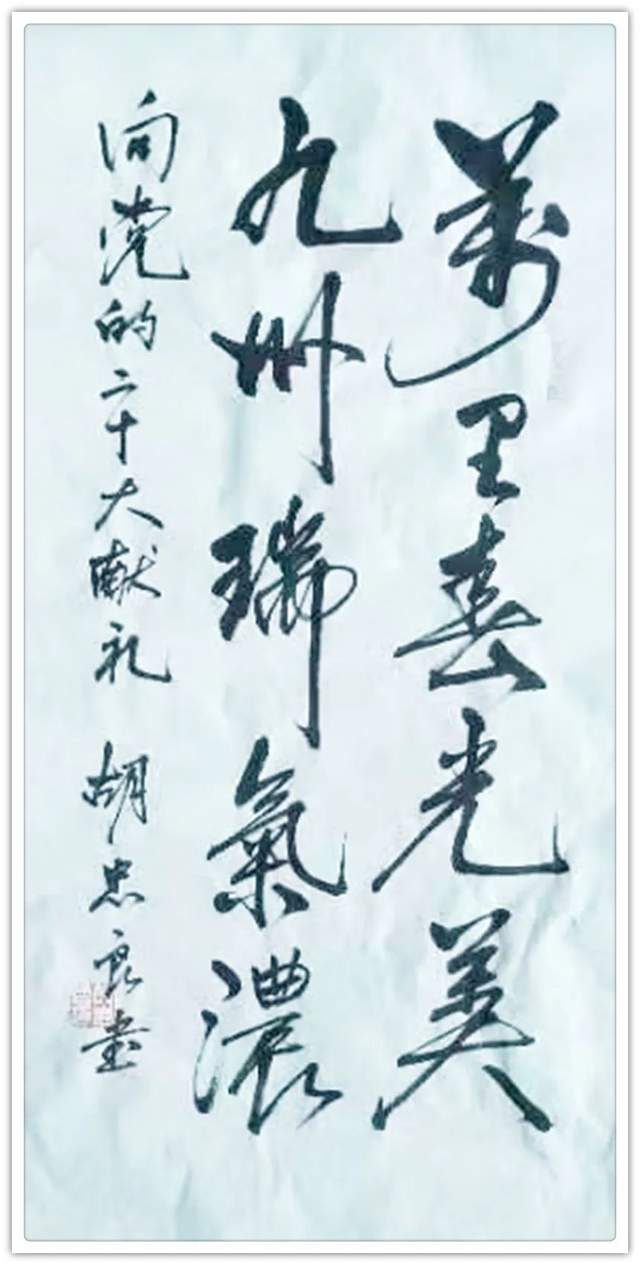 萬里春光美
九州瑞氣濃
向党的二十大献礼 胡忠良书